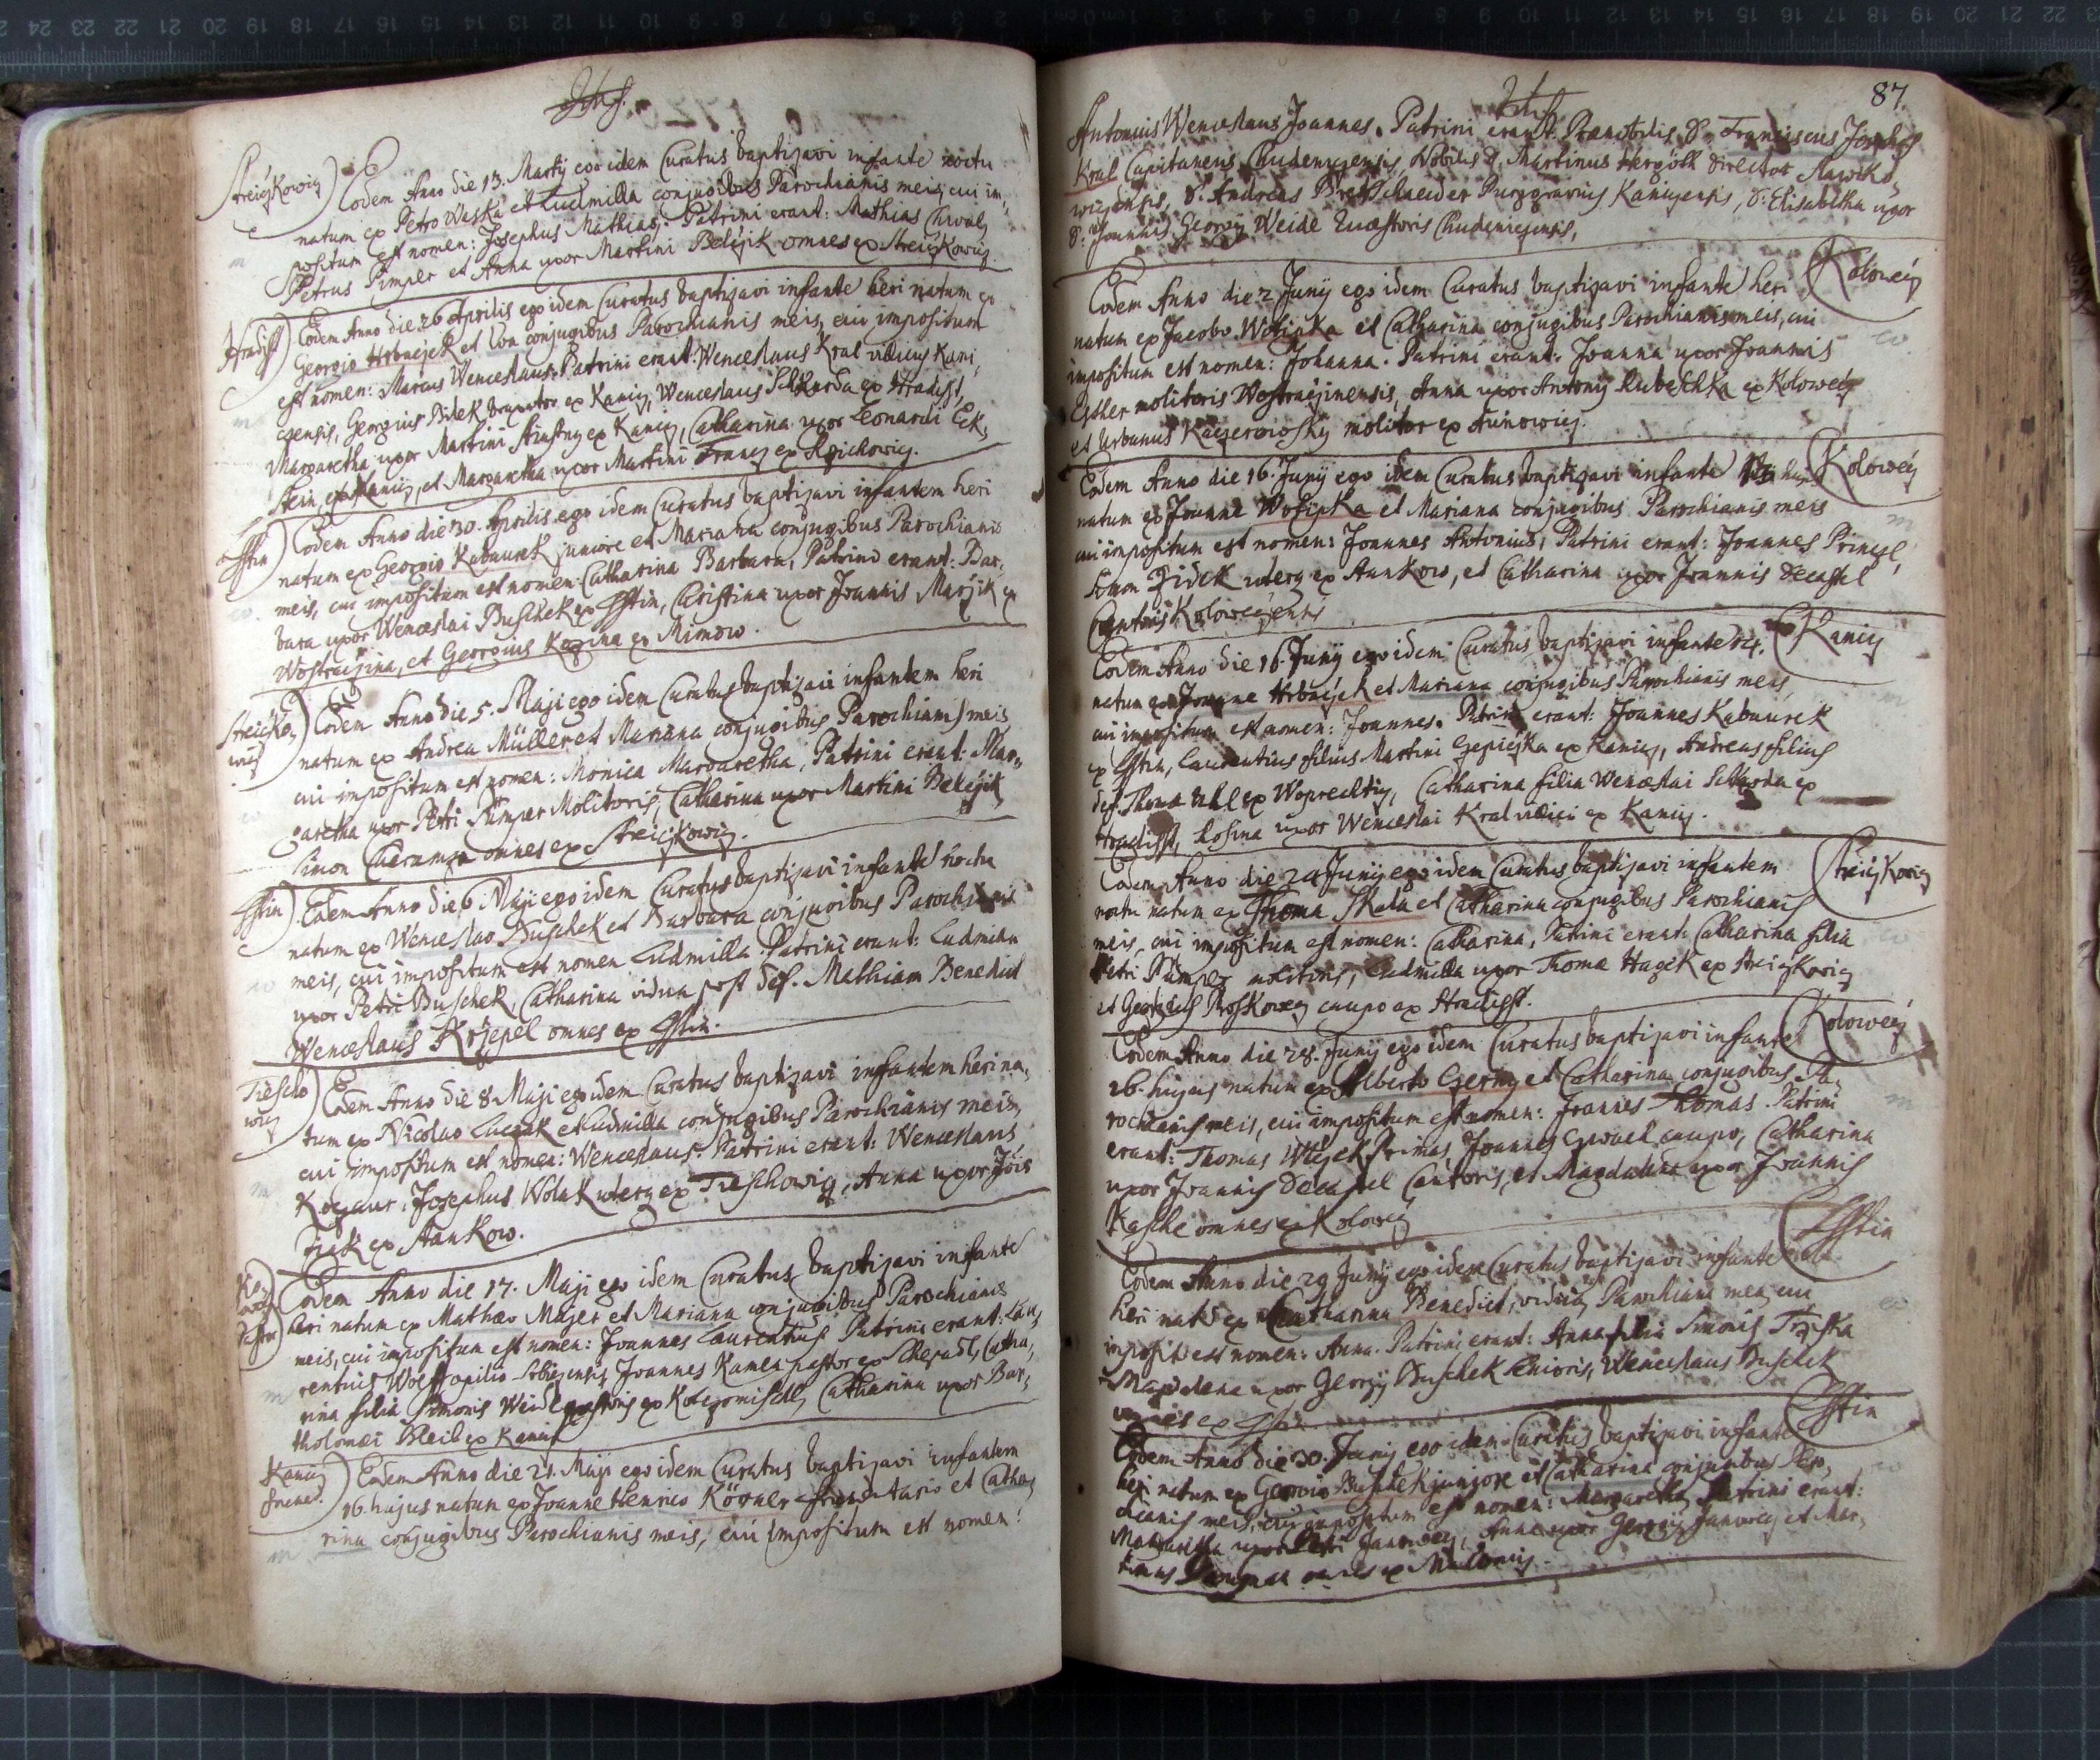 Streičkowicz
Eodem Anno die 13. Martij ego idem Curatus baptizavi infante noctu
natum ex Petro Waska et Ludmilla conjugibus Parochianis meis cui im,
positum est nomen: Josephus Mathias. Patrini erant: Mathias
Petrus Pimper et Anna uxor Martini Belejik omnes ex Streičkowicz.
Hradisst
Eodem Anno die 26 Aprilis ego idem Curatus baptizavi infante heri natum ex
Georgio Hrbaczek et Eva conjugibus Parochianis meis, cui impositum
est nomen: Marcus Wenceslaus. Patrini erant: Wenceslaus Kral villicus Kani,
czensis, Georgius Bidek ex Kanicz, Wenceslaus ex Hradisst,
Margaretha uxor Martini ex Kanicz, Catharina uxor Leonardi Ek,
stein ex Kanicz, et Margaretha uxor Martini Francz ex
Esstin
Eodem Anno die 30. Aprilis ego idem Curatus baptizavi infantem heri
natum ex Georgio Kabaurek juniore et Mariana conjugibus Parochianis
meis, cui impositum est nomen: Catharina Barbara, Patrini erant: Bar,
bara uxor Wenceslai Buschek ex Esstin, Christina uxor Joannis Marzik ex
Wostraczina, et Georgius Kozina ex Mimow.
Streičko,
wicz
Eodem Anno die 5. Maji ego idem Curatus baptizavi infantem heri
natum ex Andrea Müller et Mariana conjugibus Parochianis meis
cui impositum est nomen: Monica Margaretha, Patrini erant: Mar,
garetha uxor Petri Pimper Molitoris, Catharina uxor Martini Belejik
Simon omnes ex Streičkowicz.
Esstin
Eodem Anno die 6 Maji ego idem Curatus baptizavi infante noctu
natum ex Wenceslao Buschek et Barbara conjugibus Parochianis
meis, cui impositum est nomen Ludmilla. Patrini erant: Ludmilla
uxor Petri Buschek, Catharina vidua post def. Mathiam Benedict
Wenceslaus Krzepel omnes ex Esstin.
Tiescho
wicz
Eodem Anno die 8 Maji ego idem Curatus baptizavi infantem heri na,
tum ex Nicolao Luczak et Ludmilla conjugibus Parochianis meis,
cui impositum est nomen: Wenceslaus. Patrini erant: Wenceslaus
Josephus Wolak uterq ex Tieschowicz, Anna uxor Jois
ex Stankow.
Eodem Anno die 17. Maji ego idem Curatus baptizavi infante
heri natum ex Mathæo Majer et Mariana conjugibus Parochianis
meis, cui impositum est nomen: Joannes Laurentius Patrini erant: Lau,
rentius Wolf opilio Joannes Kamen pastor ex Catha,
rina filia Simonis Weidl pastoris ex Catharina uxor Bar,
tholomæi ex Kanicz
Kanicz
Eodem Anno die 21. Maji ego idem Curatus baptizavi infantem
16. hujus natum ex Joanne Henrico Körner et Catha,
rina conjugibus Parochianis meis, cui impositum est nomen:
87.
Antonius Wenceslaus Joannes. Patrini erant: Prænobilis D. Franciscus Josephus
Kral Capitaneus Chudeniczensis, Nobilis D. Martinus Hergott Director
D. Andreas Bretschneider Purggravius Kaniczensis, D. Elisabetha uxor
D. Joannis Georgij Weide Quæstoris Chudeniczensis.
Kolowecz
Eodem Anno die 2 Junij ego idem Curatus baptizavi infante heri
natum ex Jacobo Wosipka et Catharina conjugibus Parochianis meis, cui
impositum est nomen: Johanna. Patrini erant: Joanna uxor Joannis
Esther molitoris Wostraczinensis, Anna uxor Antonij Rubeschka ex Kolowecz
et Urbanus Kaczerowsky molitor ex
Kolowecz
Eodem Anno die 16. Junij ego idem Curatus baptizavi infante
natum ex Joanne Wosipka et Mariana conjugibus Parochianis meis
cui impositum est nomen: Joannes Antonius, Patrini erant: Joannes
Simon Zidek uterq ex Stankow, et Catharina uxor Joannis Decastel
Cantoris Koloweczensis
Kanicz
Eodem Anno die 16. Junij ego idem Curatus baptizavi infante
natum ex Joanne Hrbaczek et Mariana conjugibus Parochianis meis,
cui impositum est nomen: Joannes. Patrini erant: Joannes Kabaurek
ex Esstin, Laurentius filius Martini ex Kanicz, Andreas filius
def. Thomæ ex Woprechticz, Catharina filia Wenceslai ex
Hradisst, Rosina uxor Wenceslai Kral villici ex Kanicz.
Streičkowicz
Eodem Anno die 24 Junij ego idem Curatus baptizavi infantem
noctu natum ex Thoma Skala et Catharina conjugibus Parochianis
meis, cui impositum est nomen: Catharina, Patrini erant: Catharina filia
Petri Pimper molitoris, Ludmilla uxor Thomæ Hagek ex Streičkowicz
et Georgius caupo ex Hradisst.
Kolowecz
Eodem Anno die 28. Junij ego idem Curatus baptizavi infante
26. hujus natum ex Alberto Czerny et Catharina conjugibus Pa,
rochianis meis, cui impositum est nomen: Joannes Thomas. Patrini
erant: Thomas Wlczek Primas, Joannes caupo, Catharina
uxor Joannis Decastel Cantoris, et Magdalena uxor Joannis
Kasche omnes ex Kolowecz
Esstin
Eodem Anno die 29 Junij ego idem Curatus baptizavi infante
heri natā ex Catharina Benedict, vidua Parochiana mea, cui
imposit est nomen: Anna. Patrini erant: Anna filia Simonis
Magdalena uxor Georgij Buschek senioris, Wenceslaus Buschek
omnes ex Esstin
Esstin
Eodem Anno die 30. Junij ego idem Curatus baptizavi infante
heri natum ex Georgio Buschek juniore et Catharina conjugibus Paro,
chianis meis, cui impositum est nomen: Margaretha, Patrini erant:
Margaretha uxor Petri Anna uxor Georgij et Mar,
tinus omnes ex